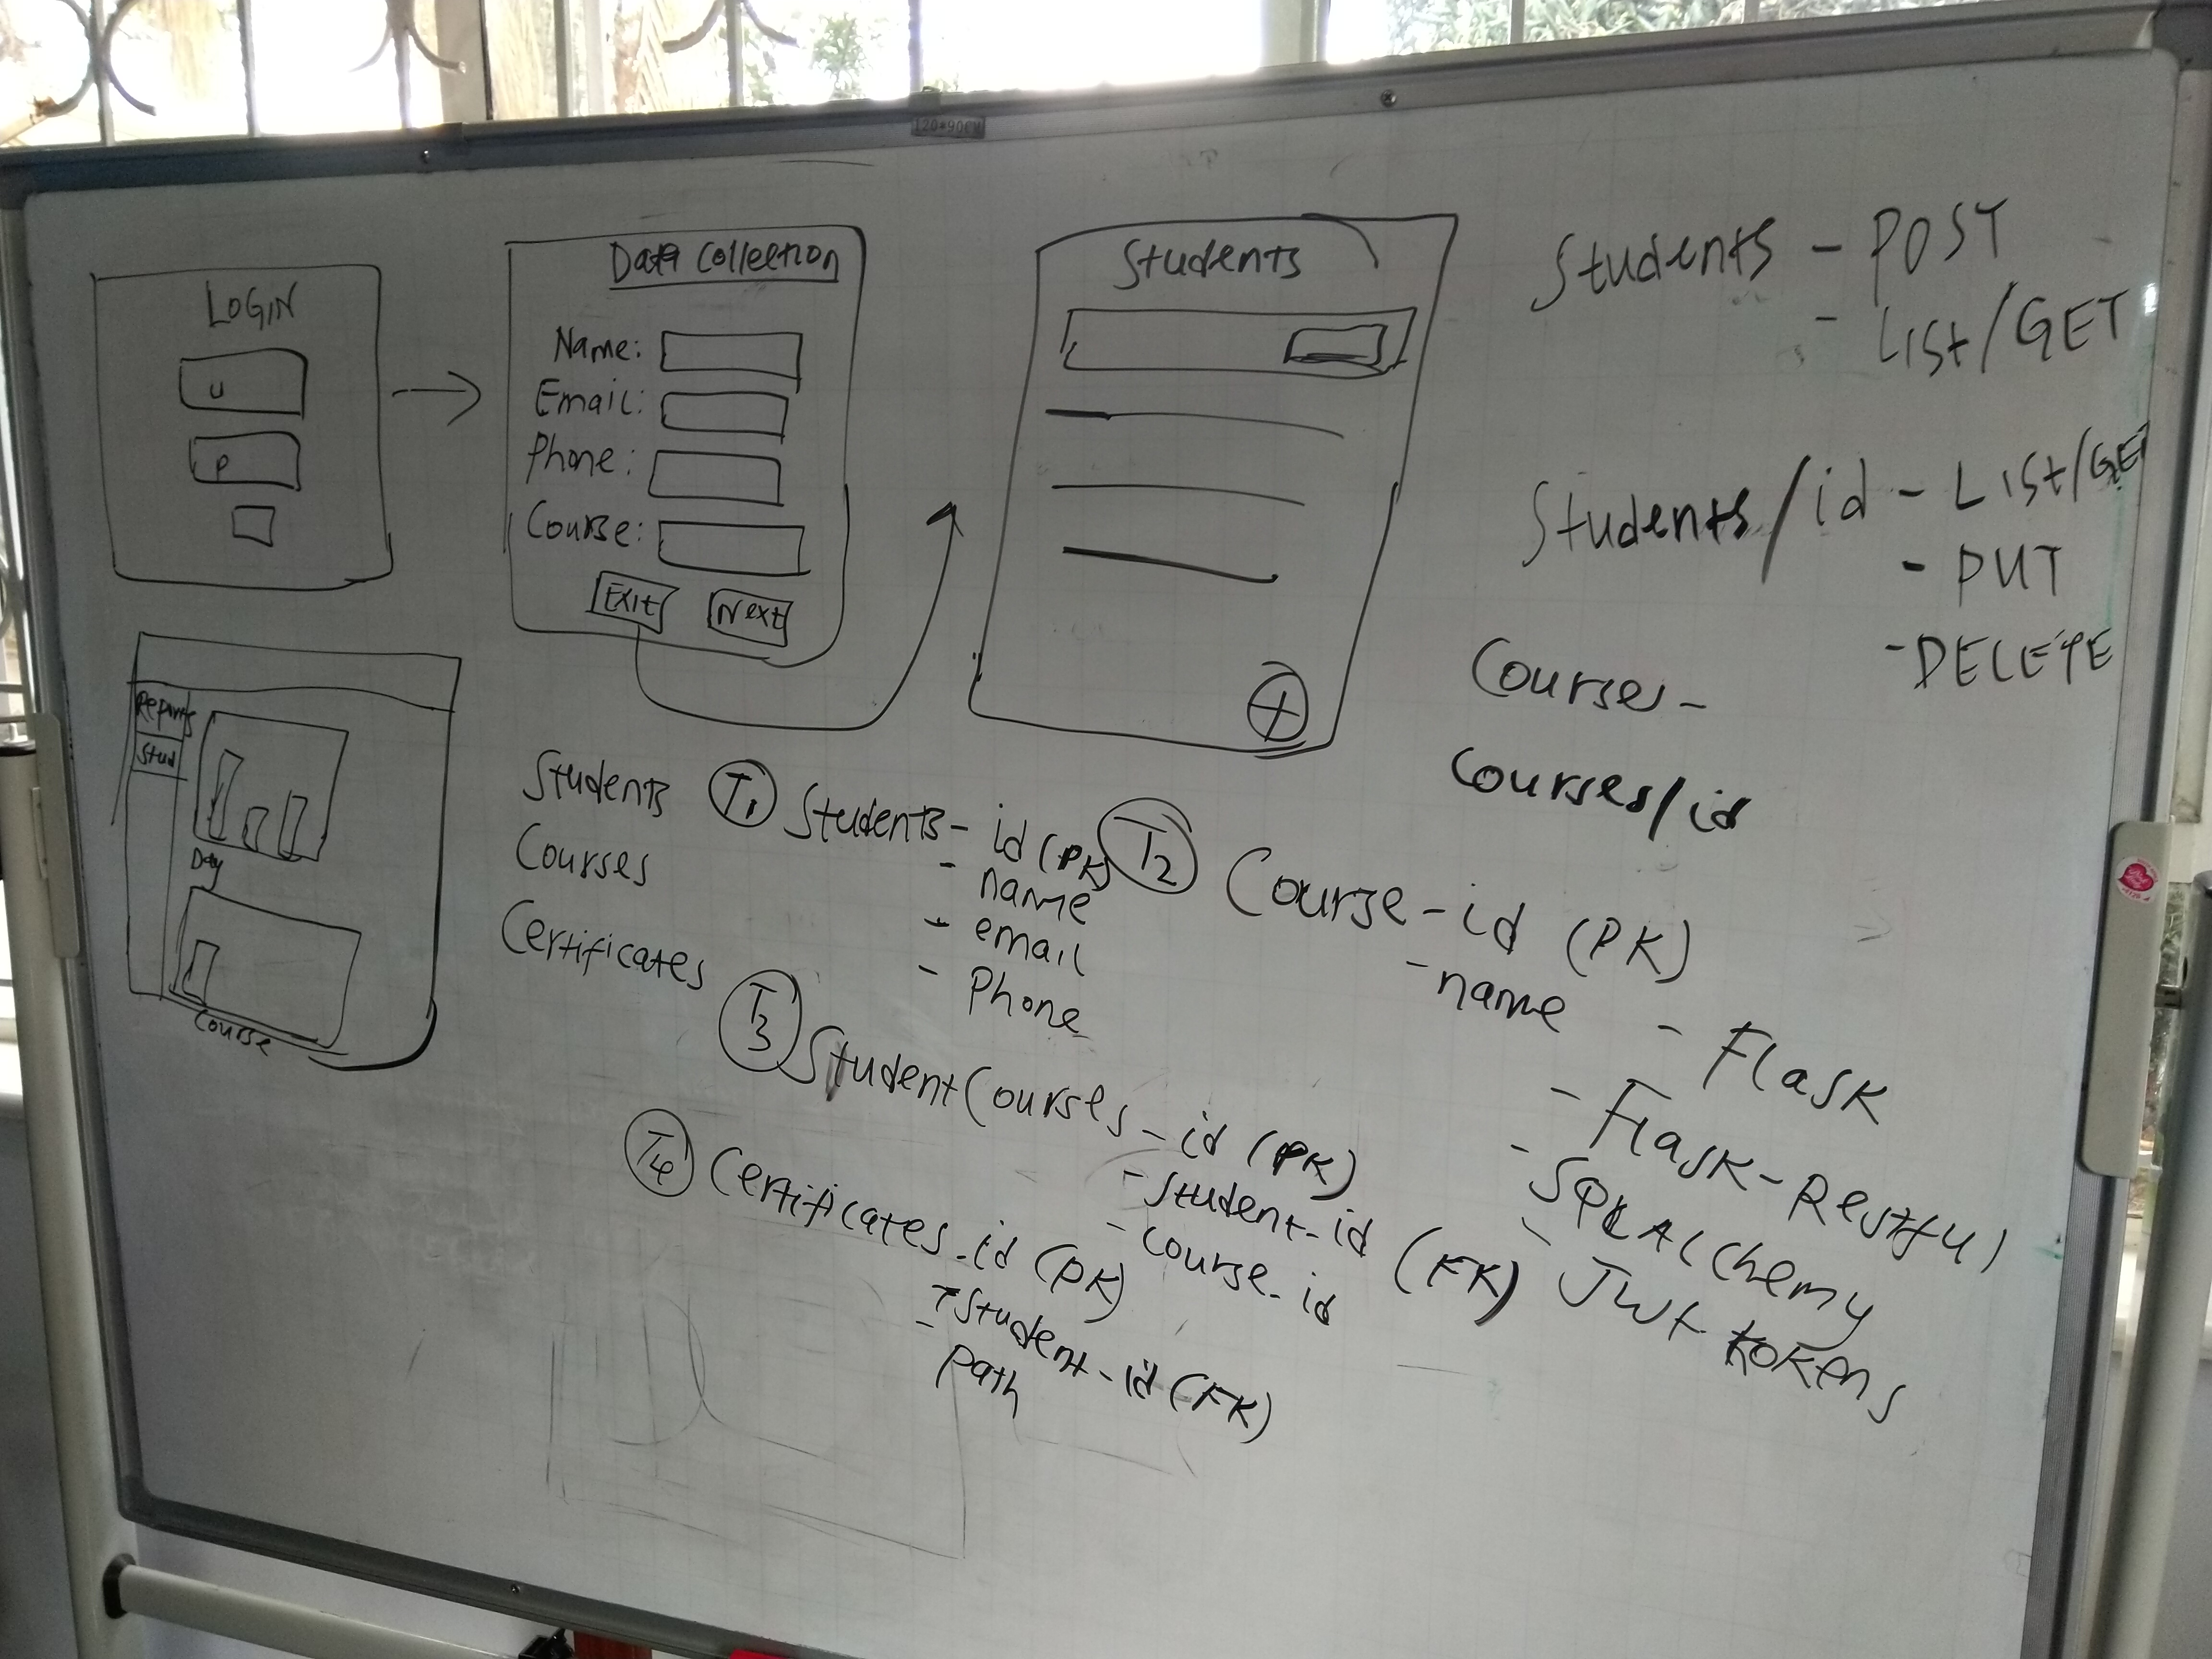 120*90CM
LOGIN
u
p
Data Collection
Name:
Email:
Phone:
Course:
Exit
Next
Students
+
Students - POST
- List/GET
Students/id - List/GET
- PUT
- DELETE
Courses -
Courses/id
Reports
Stud
Day
Course
Students
Courses
Certificates
T1 Students - id (PK)
- name
- email
- Phone
T2 Course - id (PK)
- name
T3 StudentCourses - id (PK)
- student-id (FK)
- course-id
T4 Certificates - id (PK)
- student-id (FK)
- path
- Flask
- Flask-Restful
- SQLAlchemy
- Jwt tokens